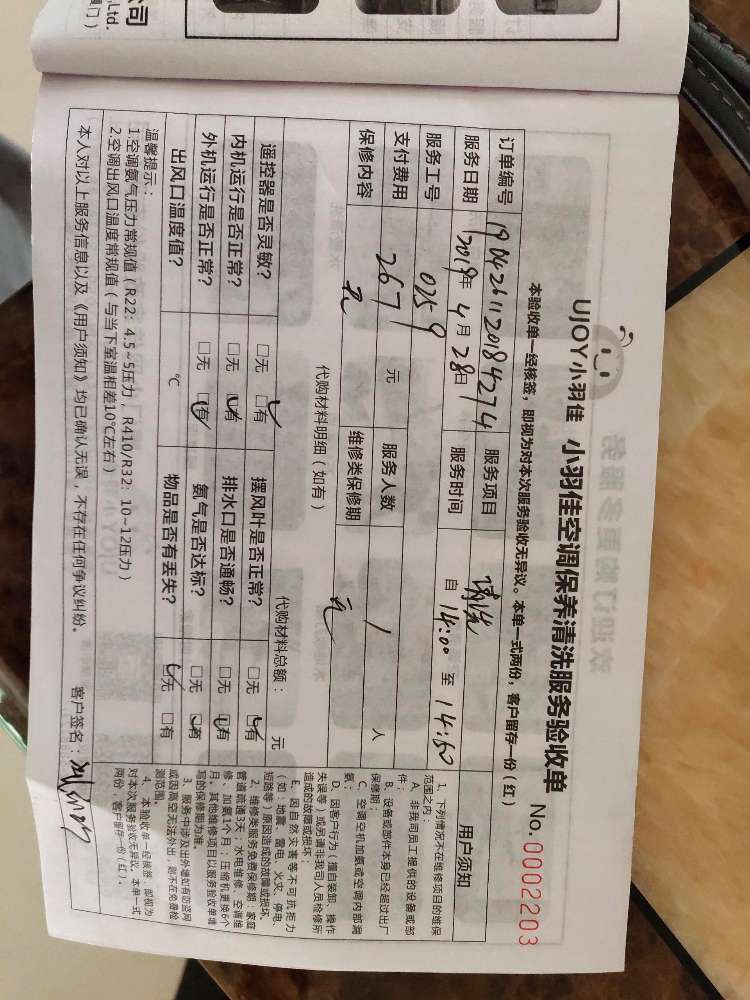 公司
Ltd.
厦门）
UJOY小羽佳 小羽佳空调保养清洗服务验收单 No.0002203
本验收单一经核签，即视为对本次服务验收无异议。本单一式两份，客户留存一份（红）
订单编号 服务项目 清洗
服务日期 2019年4月28日 服务时间 自 14:00 至 14:50
服务工号 0259
支付费用 267 元 服务人数 1 人
保修内容 无 维修类保修期 无
代购材料明细（如有） 代购材料总额： 元
遥控器是否灵敏？ □无 □有 摆风叶是否正常？ □无 □有
内机运行是否正常？ □无 □有 排水口是否通畅？ □无 □有
外机运行是否正常？ □无 □有 氨气是否达标？ □无 □有
出风口温度值？ ℃ 物品是否有丢失？ □无 □有
温馨提示：
1.空调氨气压力常规值（R22：4.5~5压力，R410/R32：10~12压力）
2.空调出风口温度常规值（与当下室温相差10℃左右）
本人对以上服务信息以及《用户须知》均已确认无误，不存在任何争议纠纷。 客户签名：
用户须知
1、下列情况不在维修项目的维保
范围之内：
A、非我司员工提供的设备或部
件；
B、设备或部件本身已经超过出厂
保修期；
C、空调空机加氨或空调内部漏
氨；
D、因客户行为（擅自装卸、操作
失误等）或另请非我司人员检修所
造成的故障或损坏；
E、因自然灾害等不可抗拒力
（如：地震、雷电、火灾、停电、
短路等）原因造成的故障或损坏。
2、维修类服务免费保修期：家庭
管道疏通3天、水电维修、空调维
修、加氨1个月；压缩机更换6个
月。其他维修项目以服务验收单填
写的保修期为准。
3、服务中涉及出外墙如有防盗网
或因高空无法外出，则不在免费检
测范围。
4、本验收单一经核签，即视为
对本次服务验收无异议，本单一式
两份，客户留存一份（红）。